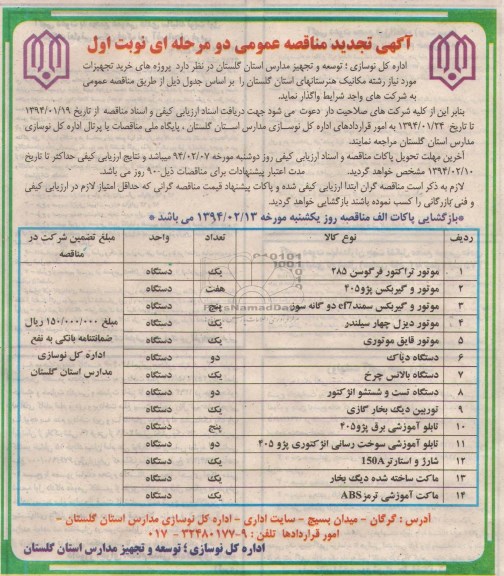 آگهی تجدید مناقصه عمومی دو مرحله ای نوبت اول
اداره کل نوسازی ؛ توسعه و تجهیز مدارس استان گلستان در نظر دارد پروژه های خرید تجهیزات
مورد نیاز رشته مکانیک هنرستانهای استان گلستان را بر اساس جدول ذیل از طریق مناقصه عمومی
به شرکت های واجد شرایط واگذار نماید.
بنابر این از کلیه شرکت های صلاحیت دار دعوت می شود جهت دریافت اسناد ارزیابی کیفی و اسناد مناقصه از تاریخ ۱۳۹۴/۰۱/۱۹
تا تاریخ ۱۳۹۴/۰۱/۲۴ به امور قراردادهای اداره کل نوسازی مدارس استان گلستان ، پایگاه ملی مناقصات یا پرتال اداره کل نوسازی
مدارس استان گلستان مراجعه نمایند.
آخرین مهلت تحویل پاکات مناقصه و اسناد ارزیابی کیفی روز دوشنبه مورخه ۹۴/۰۲/۰۷ میباشد و نتایج ارزیابی کیفی حداکثر تا تاریخ
۱۳۹۴/۰۲/۱۰ مشخص خواهد گردید. مدت اعتبار پیشنهادات برای مناقصات ذیل ۹۰۰ روز می باشد.
لازم به ذکر است مناقصه گران ابتدا ارزیابی کیفی شده و پاکات پیشنهاد قیمت مناقصه گرانی که حداقل امتیاز لازم در ارزیابی کیفی
و فنی بازرگانی را کسب نموده باشند بازگشایی خواهد گردید.
*بازگشایی پاکات الف مناقصه روز یکشنبه مورخه ۱۳۹۴/۰۲/۱۳ می باشد *
ردیف نوع کالا تعداد واحد مبلغ تضمین شرکت در مناقصه
۱ موتور تراکتور فرگوسن ۲۸۵ یک دستگاه
۲ موتور و گیربکس پژو۴۰۵ هفت دستگاه
۳ موتور و گیربکس سمندef7 دو گانه سوز پنج دستگاه
۴ موتور دیزل چهار سیلندر یک دستگاه
۵ موتور قایق موتوری یک دستگاه
۶ دستگاه دیاگ دو دستگاه
۷ دستگاه بالانس چرخ یک دستگاه
۸ دستگاه تست و شستشو انژکتور دو دستگاه
۹ توربین دیگ بخار گازی یک دستگاه
۱۰ تابلو آموزشی برق پژو۴۰۵ پنج دستگاه
۱۱ تابلو آموزشی سوخت رسانی انژکتوری پژو ۴۰۵ دو دستگاه
۱۲ شارژ و استارتر150A یک دستگاه
۱۳ ماکت ساخته شده دیگ بخار یک دستگاه
۱۴ ماکت آموزشی ترمزABS یک دستگاه
مبلغ ۱۵۰/۰۰۰/۰۰۰ ریال
ضمانتنامه بانکی به نفع
اداره کل نوسازی
مدارس استان گلستان
آدرس : گرگان - میدان بسیج - سایت اداری - اداره کل نوسازی مدارس استان گلستان -
امور قراردادها تلفن : ۹-۳۲۴۸۰۱۷۷ - ۰۱۷
اداره کل نوسازی ؛ توسعه و تجهیز مدارس استان گلستان